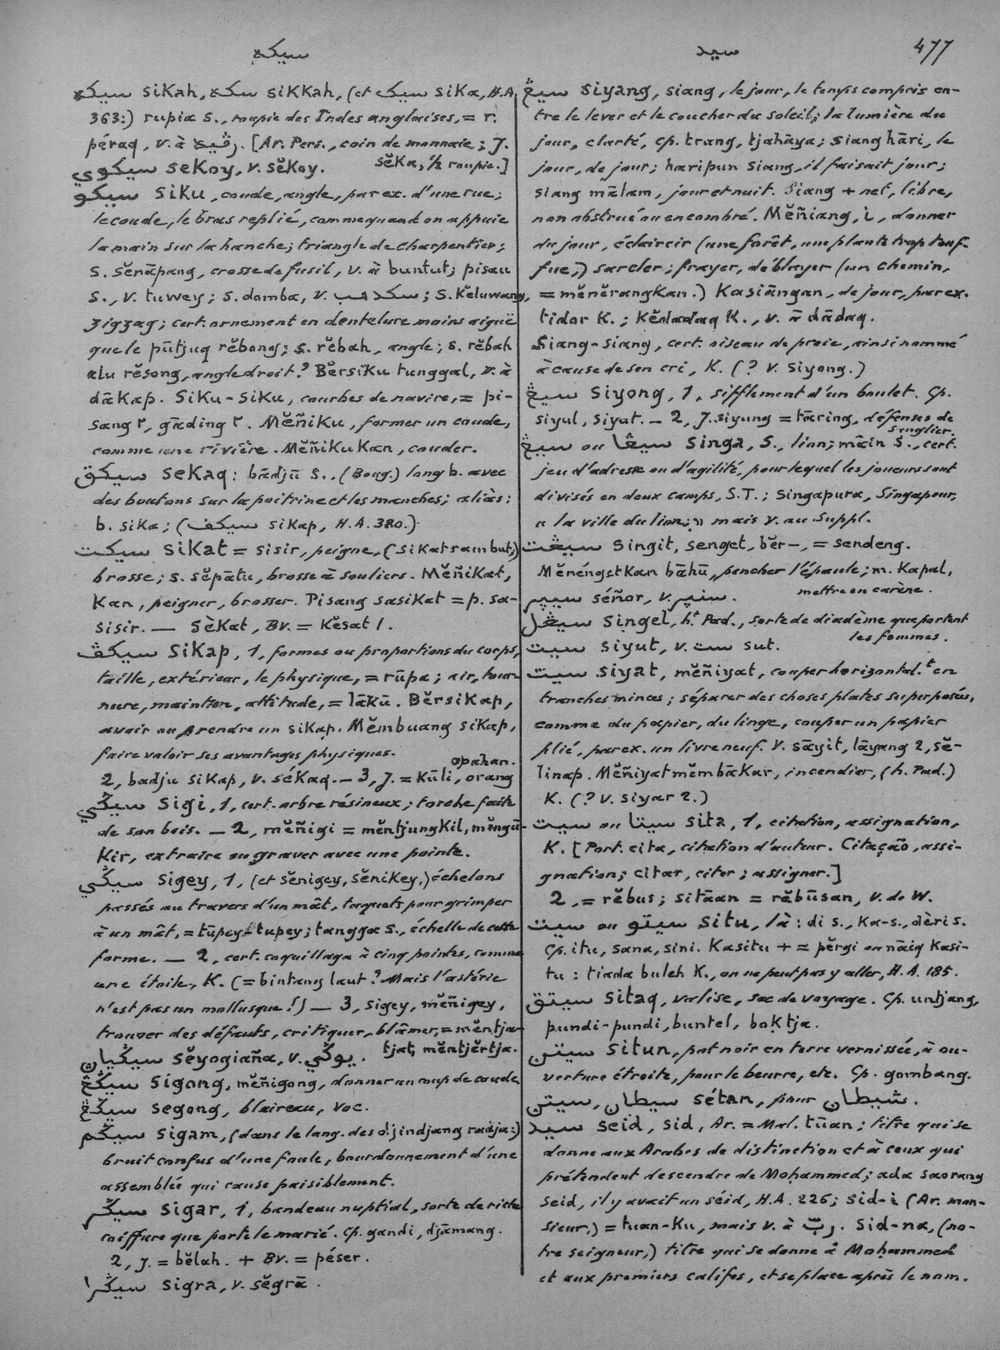 سيكه
سيد
477
سيكه sikah, سكه sikkah, (et سيک sika, H.A.
363:) rupia s., roupie des Indes anglaises, = r.
péraq, v. à رڤيه. [Ar. Pers., coin de monnaie; J.
sĕka, ½ roupie.]
سيكوي sekoy, v. sĕkoy.
سيكو siku, coude, angle, par ex. d'une rue;
le coude, le bras replié, comme quand on appuie
la main sur la hanche; triangle de charpentier;
s. sĕnāpang, crosse de fusil, v. à buntut; pisau
s., v. tuwey; s. domba, v.; s. kĕluwang,
zigzag; cert. ornement en dentelure moins aiguë
que le pūtjuq rĕbong; s. rĕbah, angle; s. rĕbah
alu rĕsong, angle droit? Bĕrsiku tunggal, v. à
dākap. Siku-siku, courbes de navire, = pi-
sang r, gāding r. Mĕñiku, former un coude,
comme une rivière. Mĕñikukan, couder.
سيكق sekaq: bādjū s., (Boug.) long b. avec
des boutons sur la poitrine et les manches; aliàs:
b. sika; (سيكف sikap, H.A. 380.)
سيكت sikat = sisir, peigne, (sikat rambut;)
brosse; s. sĕpātu, brosse à souliers. Mĕñikat,
kan, peigner, brosser. Pisang sasikat = p. sa-
sisir. — Sèkat, Bv. = kĕsat 1.
سيكڤ sikap, 1, formes ou proportions du corps,
taille, extérieur, le physique, = rūpa; air, tour-
nure, maintien, attitude, = lākū. Bĕrsikap,
avoir ou prendre un sikap. Mĕmbuang sikap,
faire valoir ses avantages physiques.
2, badju sikap, v. sékaq. — 3, J. = kūli, orang
opahan.
سيڬي sigi, 1, cert. arbre résineux; torche faite
de son bois. — 2, mĕñigi = mĕntjungkil, mĕngū-
kir, extraire ou graver avec une pointe.
سيڬي sigey, 1, (et sĕnigey, sĕnikey,) échelons
passés au travers d'un mât, taquets pour grimper
à un mât, = tūpey-tupey; tangga s., échelle de cette
forme. — 2, cert. coquillage à cinq pointes, comme
une étoile, K. (= bintang laut? Mais l'astérie
n'est pas un mollusque!) — 3, sigey, mĕñigey,
trouver des défauts, critiquer, blâmer, = mĕntja-
tjat, mĕntjĕrtja.
سيڬيان sĕyogiaña, v. يوڬي.
سيڬڠ sigong, mĕñigong, donner un coup de coude.
سيڬڠ segong, blaireau, voc.
سيڬم sigam, (dans le lang. des djindjang radja:)
bruit confus d'une foule, bourdonnement d'une
assemblée qui cause paisiblement.
سيڬر sigar, 1, bandeau nuptial, sorte de riche
coiffure que porte le marié. Cp. gandi, djāmang.
2, J. = bĕlah. + Bv. = péser.
سيڬرا sigra, v. sĕgrā.
سيڠ siyang, siang, le jour, le temps compris en-
tre le lever et le coucher du soleil; la lumière du
jour, clarté, cp. trang, tjahāya; siang hāri, le
jour, de jour; haripun siang, il faisait jour;
siang mālam, jour et nuit. Siang + net, libre,
non obstrué ou encombré. Mĕñiang, i, donner
du jour, éclaircir (une forêt, une plante trop touf-
fue,) sarcler; frayer, déblayer (un chemin,
= mĕnĕrangkan.) Kasiāngan, de jour, par ex.
tidor k.; kĕdadaq k., v. à dādaq.
Siang-siang, cert. oiseau de proie, ainsi nommé
à cause de son cri, K. (? v. siyong.)
سيڠ siyong, 1, sifflement d'un boulet. Cp.
siyul, siyut. — 2, J. siyung = tāring, défenses de
sanglier.
سيڠ ou سيڠا singa, S., lion; māin s., cert.
jeu d'adresse ou d'agilité, pour lequel les joueurs sont
divisés en deux camps, S.T.; Singapura, Singapour,
« la ville du lion; » mais v. au Suppl.
سيڠت singit, senget, bĕr—, = sendeng.
Mĕnéngetkan bāhū, pencher l'épaule; m. kapal,
mettre en carène.
سيير séñor, v. سنير.
سيڠل singel, ht. Pad., sorte de diadème que portent
les femmes.
سيت siyut, v. ست sut.
سيت siyat, mĕñiyat, couper horizontal.t en
tranches minces; séparer des choses plates superposées,
comme du papier, du linge, couper un papier
plié, par ex. un livre neuf. V. sāyit, lāyang 2, sĕ-
linap. Mĕñiyat mĕmbākar, incendier, (h. Pad.)
K. (? v. siyar 2.)
سيت ou سيتا sita, 1, citation, assignation,
K. [Port. cita, citation d'auteur. Citação, assi-
gnation; citar, citer; assigner.]
2, = rĕbus; sitāan = rĕbūsan, v. de W.
سيت ou سيتو situ, là: di s., ka-s., dèri s.
Cp. itu, sana, sini. Kasitu + = pĕrgi ou nāiq kasi-
tu: tiada buleh k., on ne peut pas y aller, H.A. 185.
سيتق sitaq, valise, sac de voyage. Cp. untjang,
pundi-pundi, buntel, boktja.
سيتن situn, pot noir en terre vernissée, à ou-
verture étroite, pour le beurre, etc. Cp. gombang.
سيتن, سيطان sétan, pour شيطان.
سيد seid, sid, Ar. = Mal. tūan; titre qui se
donne aux Arabes de distinction et à ceux qui
prétendent descendre de Moḥammed; ada saorang
seid, il y avait un séid, H.A. 226; sid-i (Ar. mon-
sieur,) = tuan-ku, mais v. à ربّ. Sid-na, (no-
tre seigneur,) titre qui se donne à Moḥammed
et aux premiers califes, et se place après le nom.